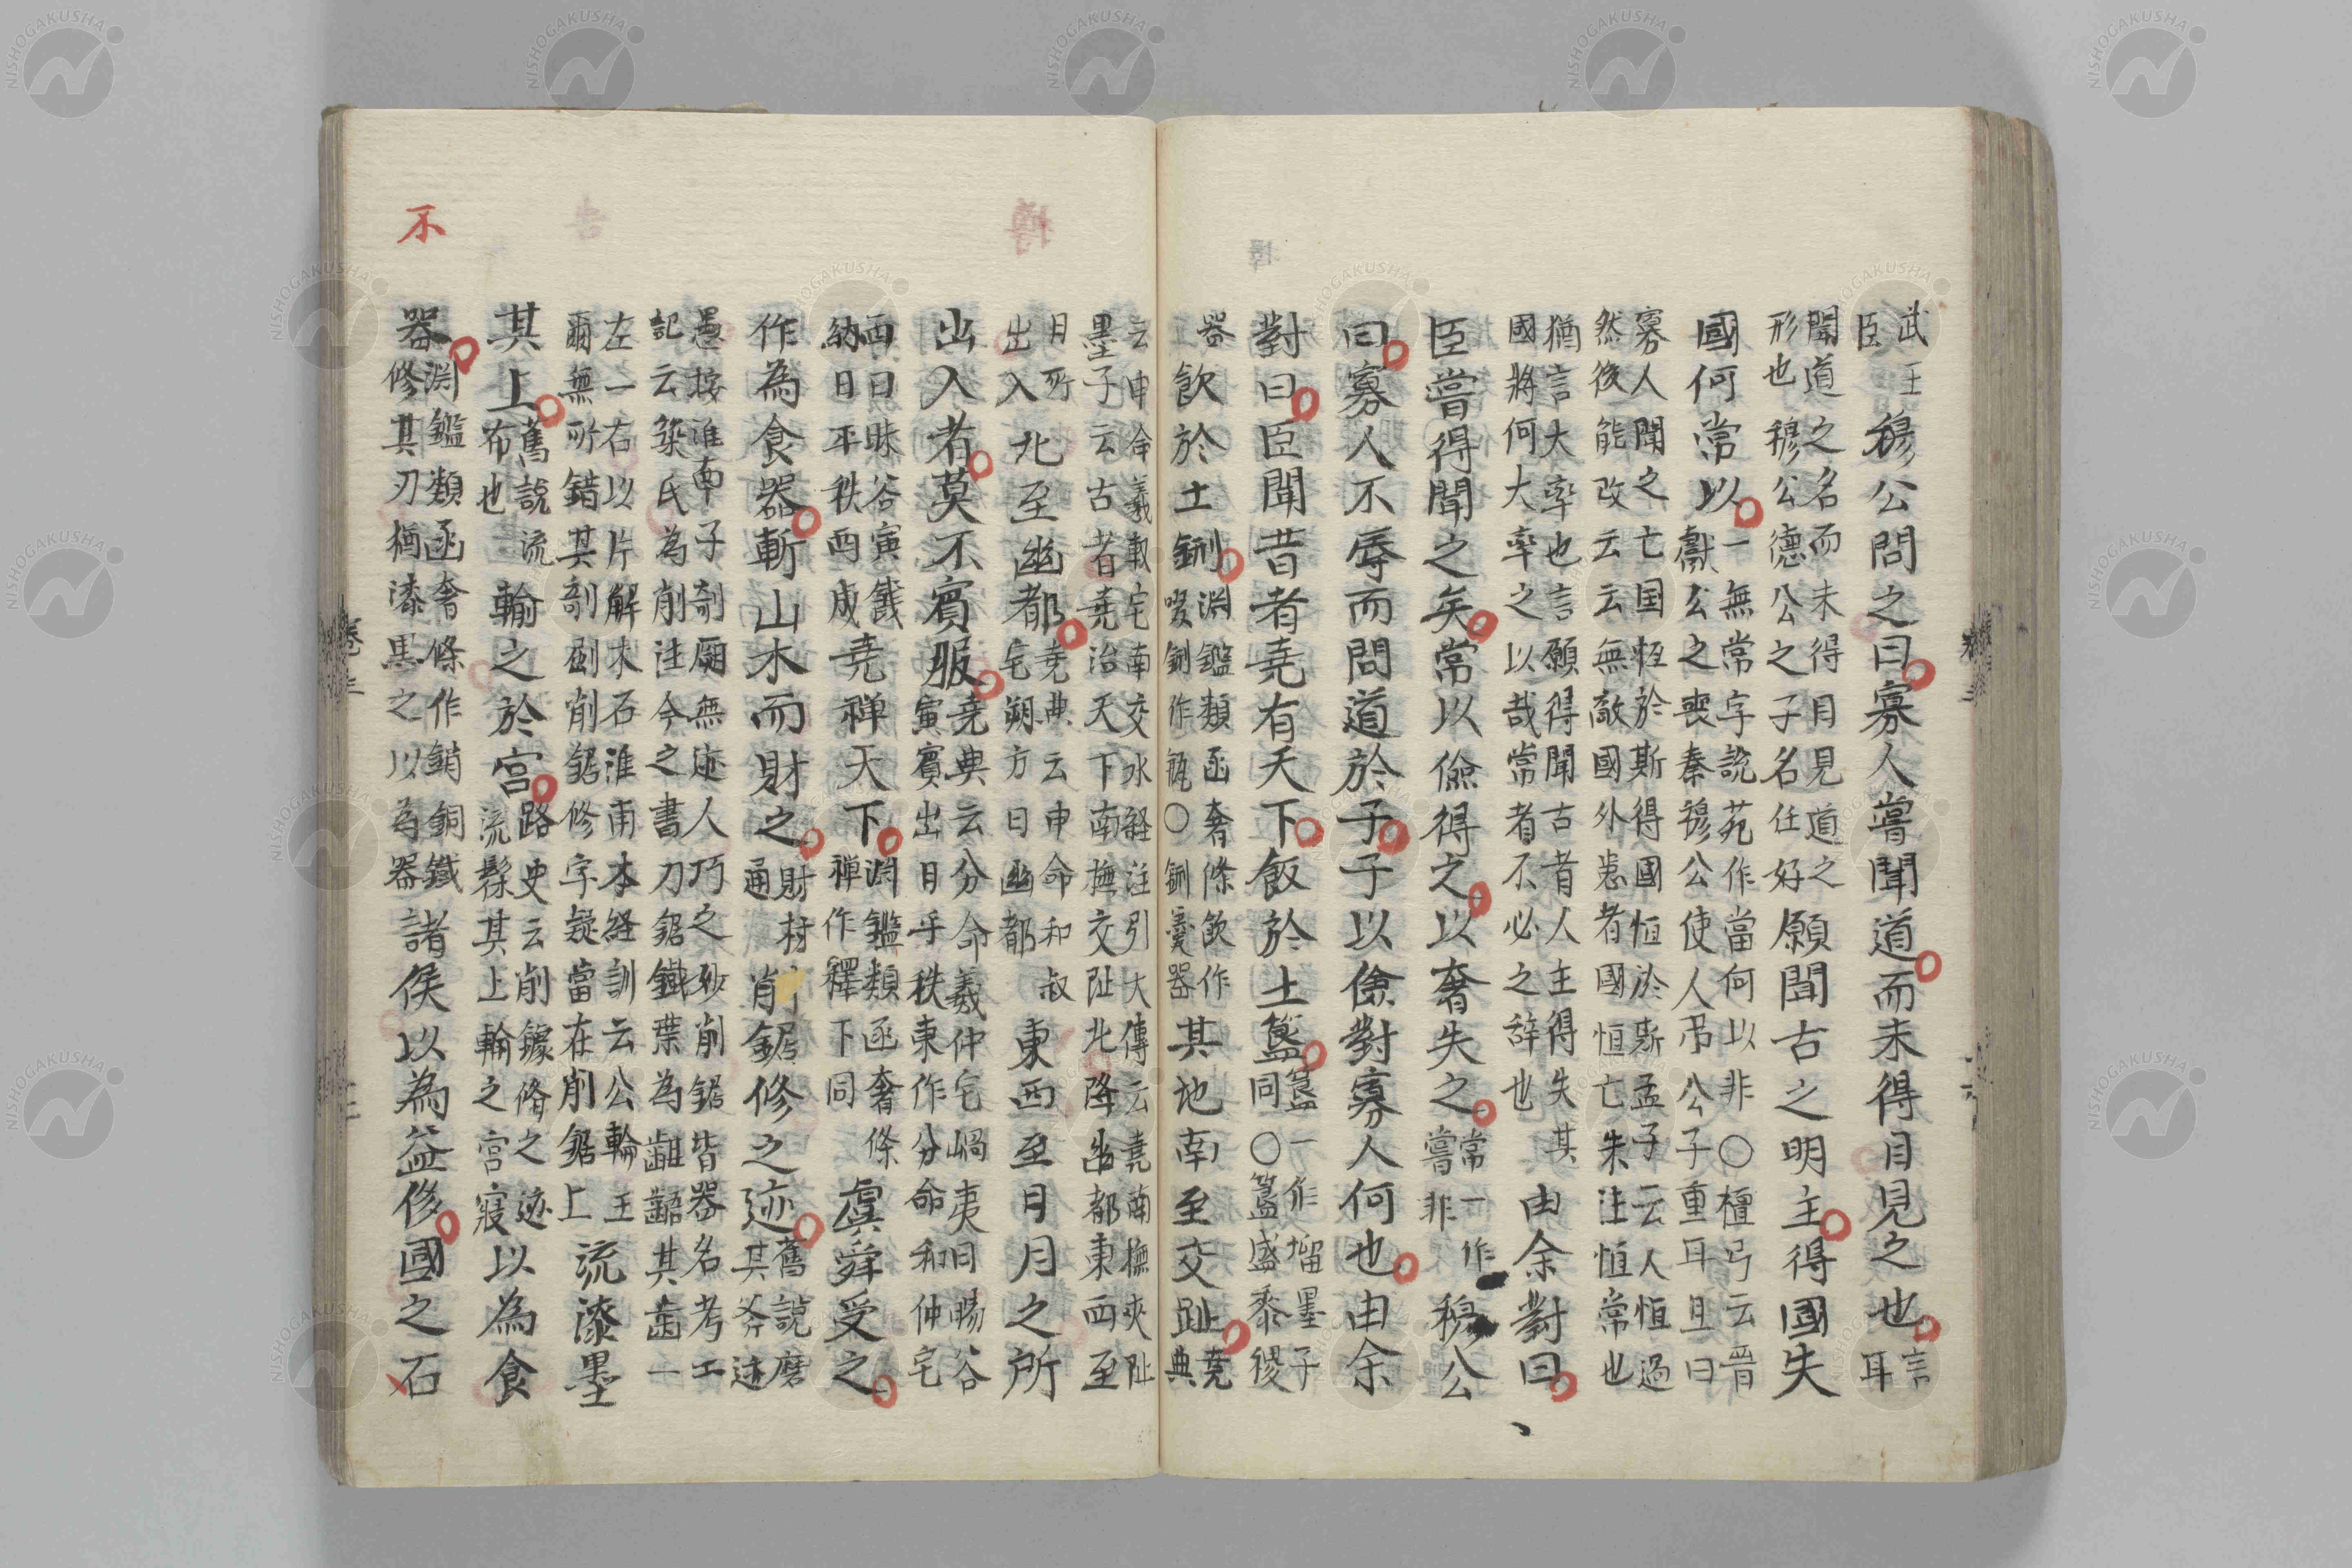 武王
臣
穆公問之曰寡人嘗聞道而未得目見之也
言
耳
聞道之名而未得目見道之
形也穆公德公之子名任好
願聞古之明主得國失
國何常以
一無常字說苑作當何以非○檀弓云晉
獻公之喪秦穆公使人吊公子重耳且曰
寡人聞之亡国恆於斯得國恒於斯孟子云人恒過
然後能改云云無敵國外患者國恒亡朱注恒常也
猶言大率也言願得聞古者人主得失其
國將何大率之以哉常者不必之辞也
由余對曰
臣嘗得聞之矣常以儉得之以奢失之
常一作
嘗非
穆公
曰寡人不辱而問道於子子以儉對寡人何也由余
對曰臣聞昔者堯有天下飯於土簋
簋一作塯墨子
同○簋盛黍稷
器
飲於土鉶
淵鑑類函奢條飲作
啜鉶作瓶○鉶羹器
其地南至交趾
堯
典
云申命羲叔宅南交水経注引大傳云堯南撫交趾
墨子云古者堯治天下南撫交趾北降幽都東西至
日所
出入
北至幽都
堯典云申命和叔
宅朔方曰幽都
東西至日月之所
出入者莫不賓服
堯典云分命羲仲宅嵎夷曰暘谷
寅賓出日平秩東作分命和仲宅
西曰昧谷寅餞
納日平秩西成
堯禅天下
淵鑑類函奢條
禅作釋下同
虞舜受之
作為食器斬山木而財之
財材
通
削鋸修之迹
舊說磨
其斧迹
愚按淮南子剞劂無迹人巧之妙削鋸皆器名考工
記云築氏為削注今之書刀鋸鐵葉為齟齬其齒一
左一右以片解木石淮南本経訓云公輸王
爾無所錯其剞劂削鋸修字疑當在削鋸上
流漆墨
其上
舊說流
布也
輸之於宮
路史云削鐻脩之迹
流髹其上輸之宮寢
以為食
器
淵鑑類函奢條作銷銅鐵
修其刃猶漆黒之以為器
諸侯以為益侈國之不
不
卷三
NISHOGAKUSHA